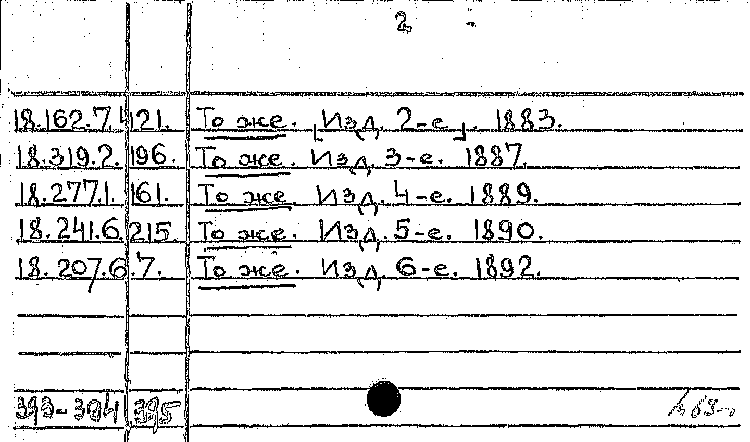 2
18.162.7. 121. То же. [Изд. 2-е]. 1883.
18.319.2. 196. То же. Изд. 3-е. 1887.
18.277.1. 161. То же. Изд. 4-е. 1889.
18.241.6. 215. То же. Изд. 5-е. 1890.
18.207.6. 7. То же. Изд. 6-е. 1892.
393-394 395